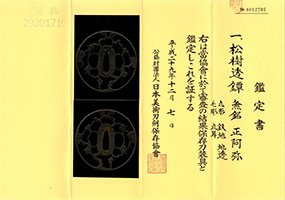 鑑定書
一、松樹透鐔 無銘 正阿弥
丸形 鉄地 地透
毛彫 丸耳
右は當協會に於て審査の結果保存刀装具と
鑑定しこれを証する
平成二十九年十二月 七日
公益財團法人 日本美術刀剣保存協會
№ 4012785